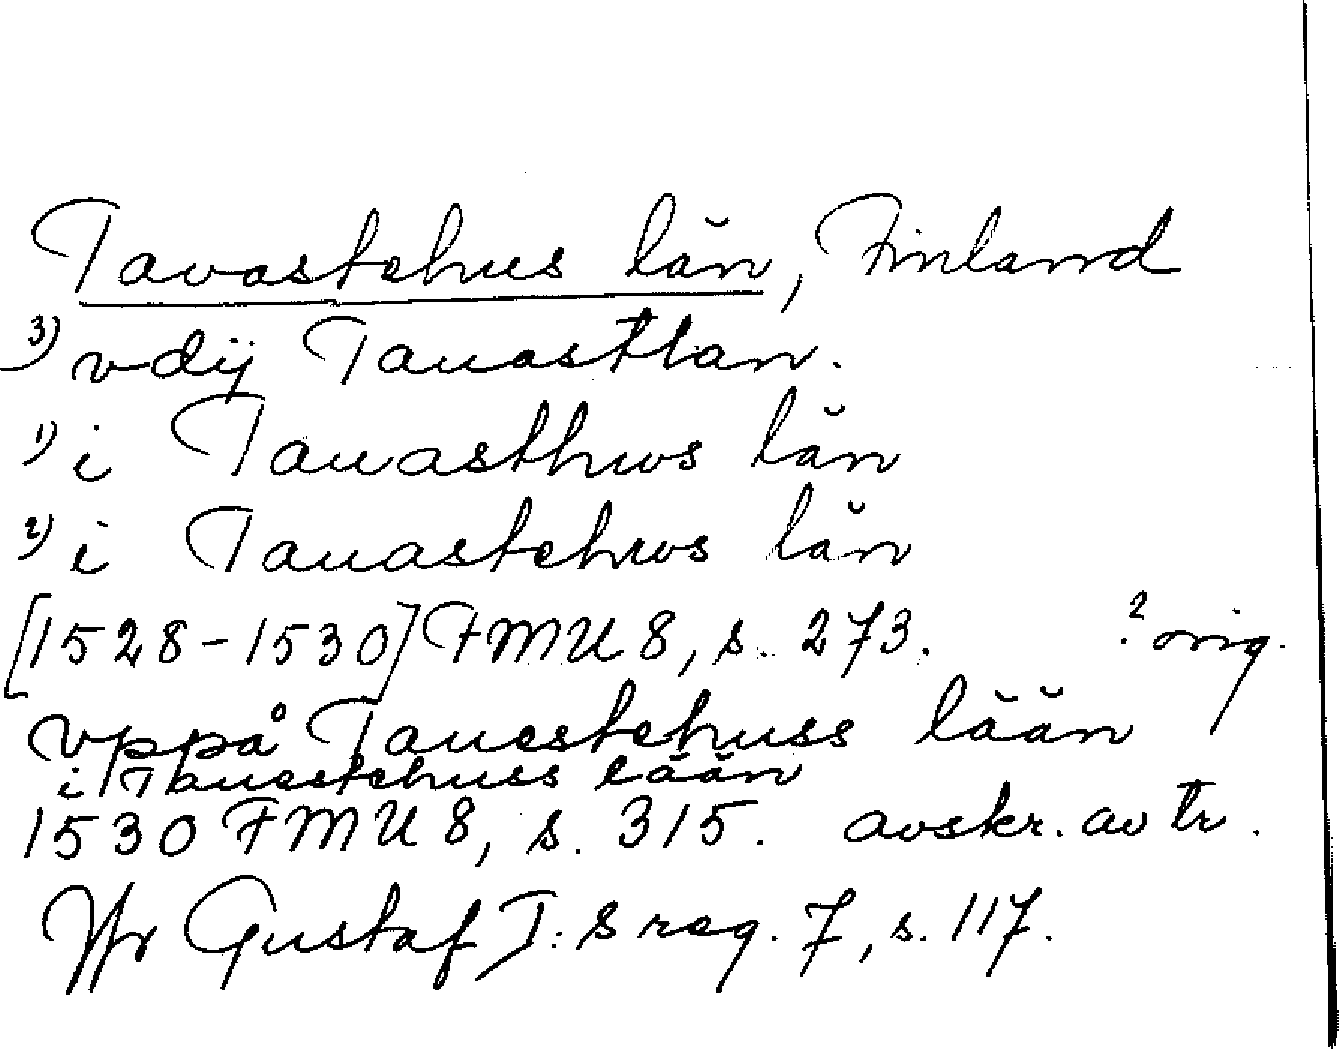 Tavastehus län, Finland
3) vdij Tauastlan.
1) i Tauasthws län
2) i Tauastehws län
[1528-1530] FMU 8, s. 273. ? orig.
vppå Tauestehuss lään
i Tauestehuss lään
1530 FMU 8, s. 315. avskr. av tr.
Jfr Gustaf I:s reg. 7, s. 117.